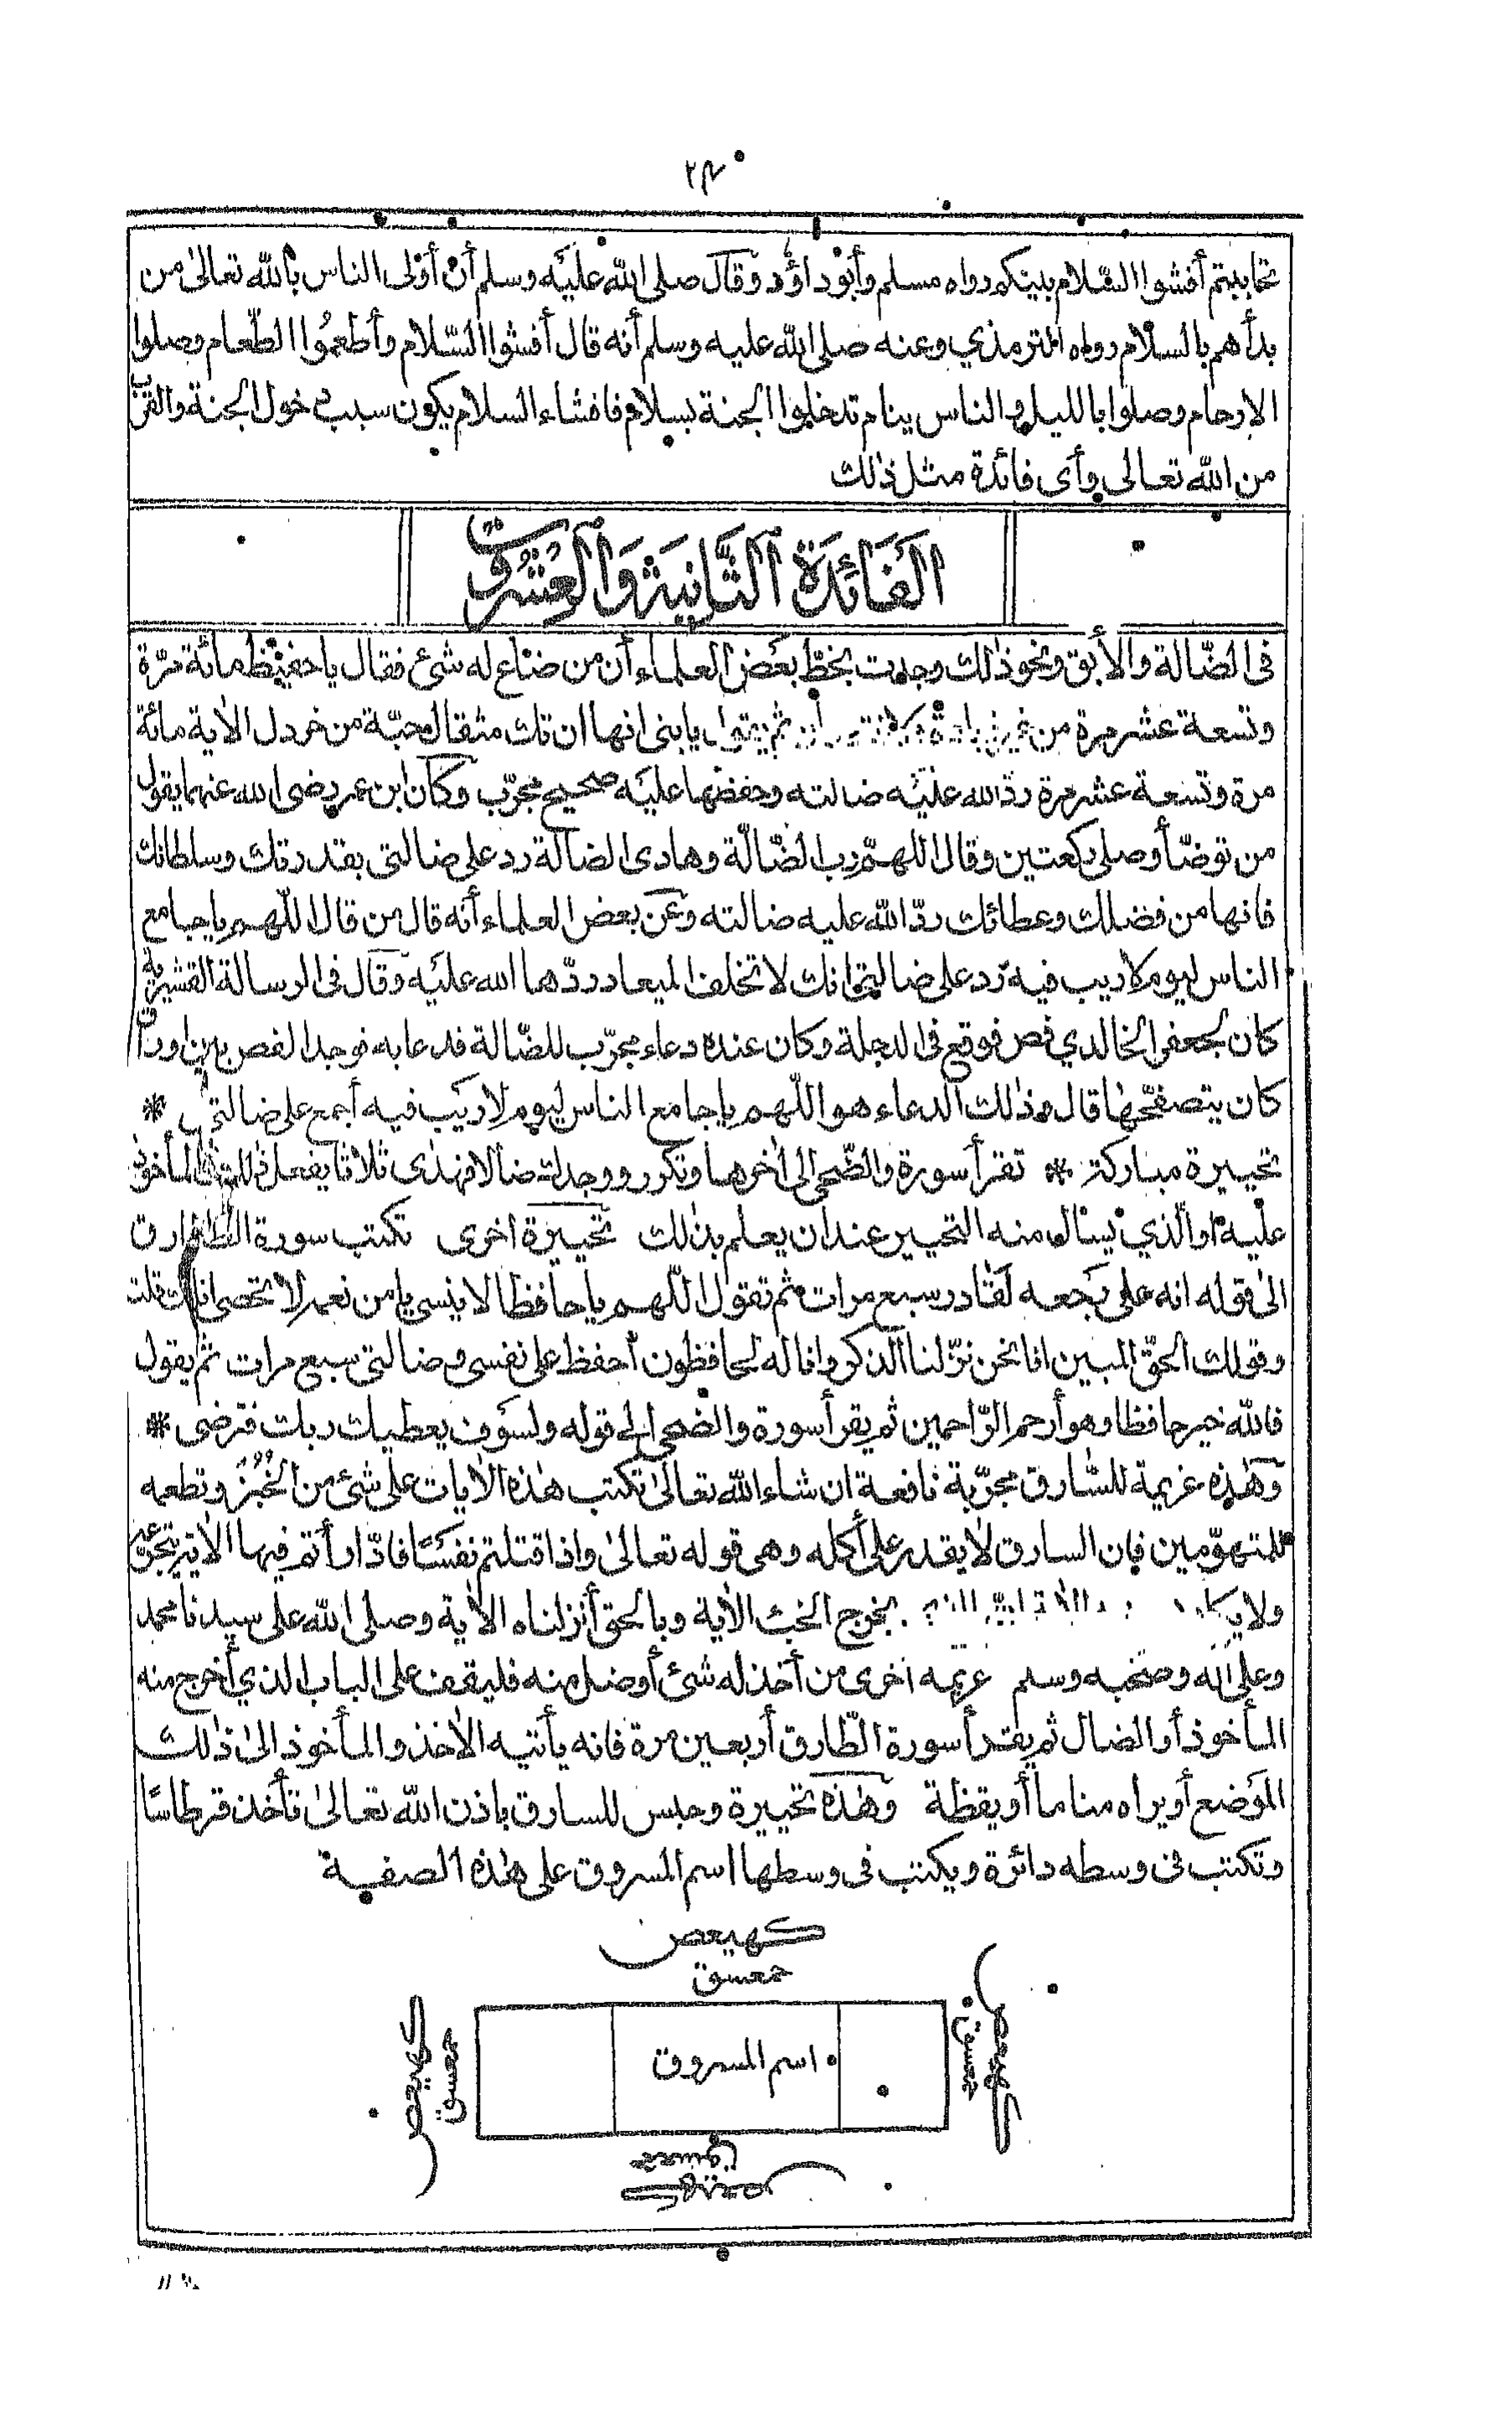 ٢٣
تحاببتم أفشوا السّلام بينكم رواه مسلم وأبو داؤد وقال صلى الله عليه وسلم أن أولى الناس بالله تعالى من
بدأهم بالسلام رواه الترمذي وعنه صلى الله عليه وسلم أنه قال أفشوا السّلام وأطعموا الطّعام وصلوا
الارحام وصلوا بالليل والناس ينام تدخلوا الجنة بسلام فافشاء السلام يكون سبب دخول الجنة والقرب
من الله تعالى وأى فائدة مثل ذلك
الفَائِدَة الثَّانِيَة وَالعِشرُون
فى الضّالة والأبق ونحو ذلك وجدت بخطّ بعض العلماء أن من ضاع له شئ فقال يا حفيظ مائة مرّة
وتسعة عشر مرة من غير ثم يقول يا بنى انها ان تك مثقال حبّة من خردل الأية مائة
مرة وتسعة عشر مرة ردّ الله عليه ضالته وحفظها عليه صحيح مجرّب وكان ابن عمر رضى الله عنهما يقول
من توضّأ وصلى ركعتين وقال اللهمّ رب الضّالّة وهادى الضالة رد على ضالتى بقدرتك وسلطانك
فانها من فضلك وعطائك ردّ الله عليه ضالته وعن بعض العلماء أنه قال من قال اللّهم يا جامع
الناس ليوم لا ريب فيه رد على ضالتى انك لا تخلف الميعاد ردّها الله عليه وقال فى الرسالة القشيرية
كان لجعفر الخالدي فص فوقع فى الدجلة وكان عنده دعاء مجرّب للضّالة فدعا به فوجد الفص بين اوراق
كان يتصفّحها قال وذلك الدعاء هو اللّهم يا جامع الناس ليوم لا ريب فيه أجمع على ضالتى *
تخييرة مباركة * تقرأ سورة والضّحى الى أخرها وتكرر ووجدك ضالا فهدى ثلاثا يفعل ذلك المأخوذ
عليه او الّذي يسأل منه التخيير عند ان يعلم بذلك تخييرة اخرى تكتب سورة الطّارق
الى قوله انه على رجعه لقادر سبع مرات ثم تقول اللّهم يا حافظا لا ينسى يا من نعمه لا تحصى انك قلت
وقولك الحقّ المبين انا نحن نزّلنا الذكر وانا له لحافظون أحفظ على نفسى وضالتى سبع مرات ثم يقول
فالله خير حافظا وهو أرحم الرّاحمين ثم يقرأ سورة والضحى الى قوله ولسوف يعطيك ربك فترضى *
وهذه عزيمة للسّارق مجرّبة نافعة ان شاء الله تعالى تكتب هذه الأيات على شئ من الخُبُز وتطعمه
للمتهوّمين فان السارق لا يقدر على أكله وهى قوله تعالى واذا قتلتم نفسًا فادّارأتم فيها الأية يتجرّعه
ولا يكاد يخرج الخبث الأية وبالحق أنزلناه الأية وصلى الله على سيدنا محمد
وعلى أله وصحبه وسلم عزيمه اخرى من أخذ له شئ أو ضل منه فليقف على الباب الذي أخرج منه
المأخوذ أو الضال ثم يقرأ سورة الطّارق أربعين مرة فانه يأتيه الأخذ والمأخوذ الى ذلك
الموضع أو يراه مناما أو يقظة وهذه تخييرة وحبس للسارق باذن الله تعالى تأخذ قرطاسًا
وتكتب فى وسطه دائرة ويكتب فى وسطها اسم المسروق على هذه الصفة
كهيعص
حمعسق
كهيعص
حمعسق
اسم المسروق
حمعسق
كهيعص
حمعسق
كهيعص